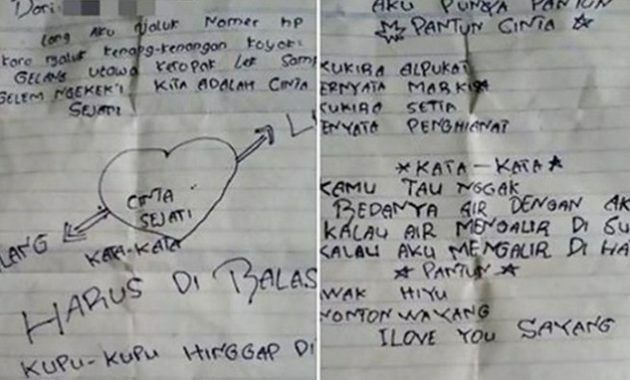 Dari:
Lang Aku Njaluk Nomer HP
karo Njaluk kenang-kenangan koyok:
GELANG utawa ketopak Lek Samp
GELEM NGEKEK'I KITA ADALAH CINTA
SEJATI
CINTA
SEJATI
LANG
KATA-KATA
HARUS DI BALAS
KUPU-KUPU HINGGAP DI
AKU PUNYA PANTUN
PANTUN CINTA
KUKIRA ALPUKAT
ERNYATA MARKISA
KUKIRA SETIA
ENYATA PENGHIANAT
KATA-KATA
KAMU TAU NGGAK
BEDANYA AIR DENGAN AK
KALAU AIR MENGALIR DI SU
KALAU AKU MENGALIR DI HA
PANTUN
WAK HIYU
NONTON WAYANG
I LOVE YOU SAYANG